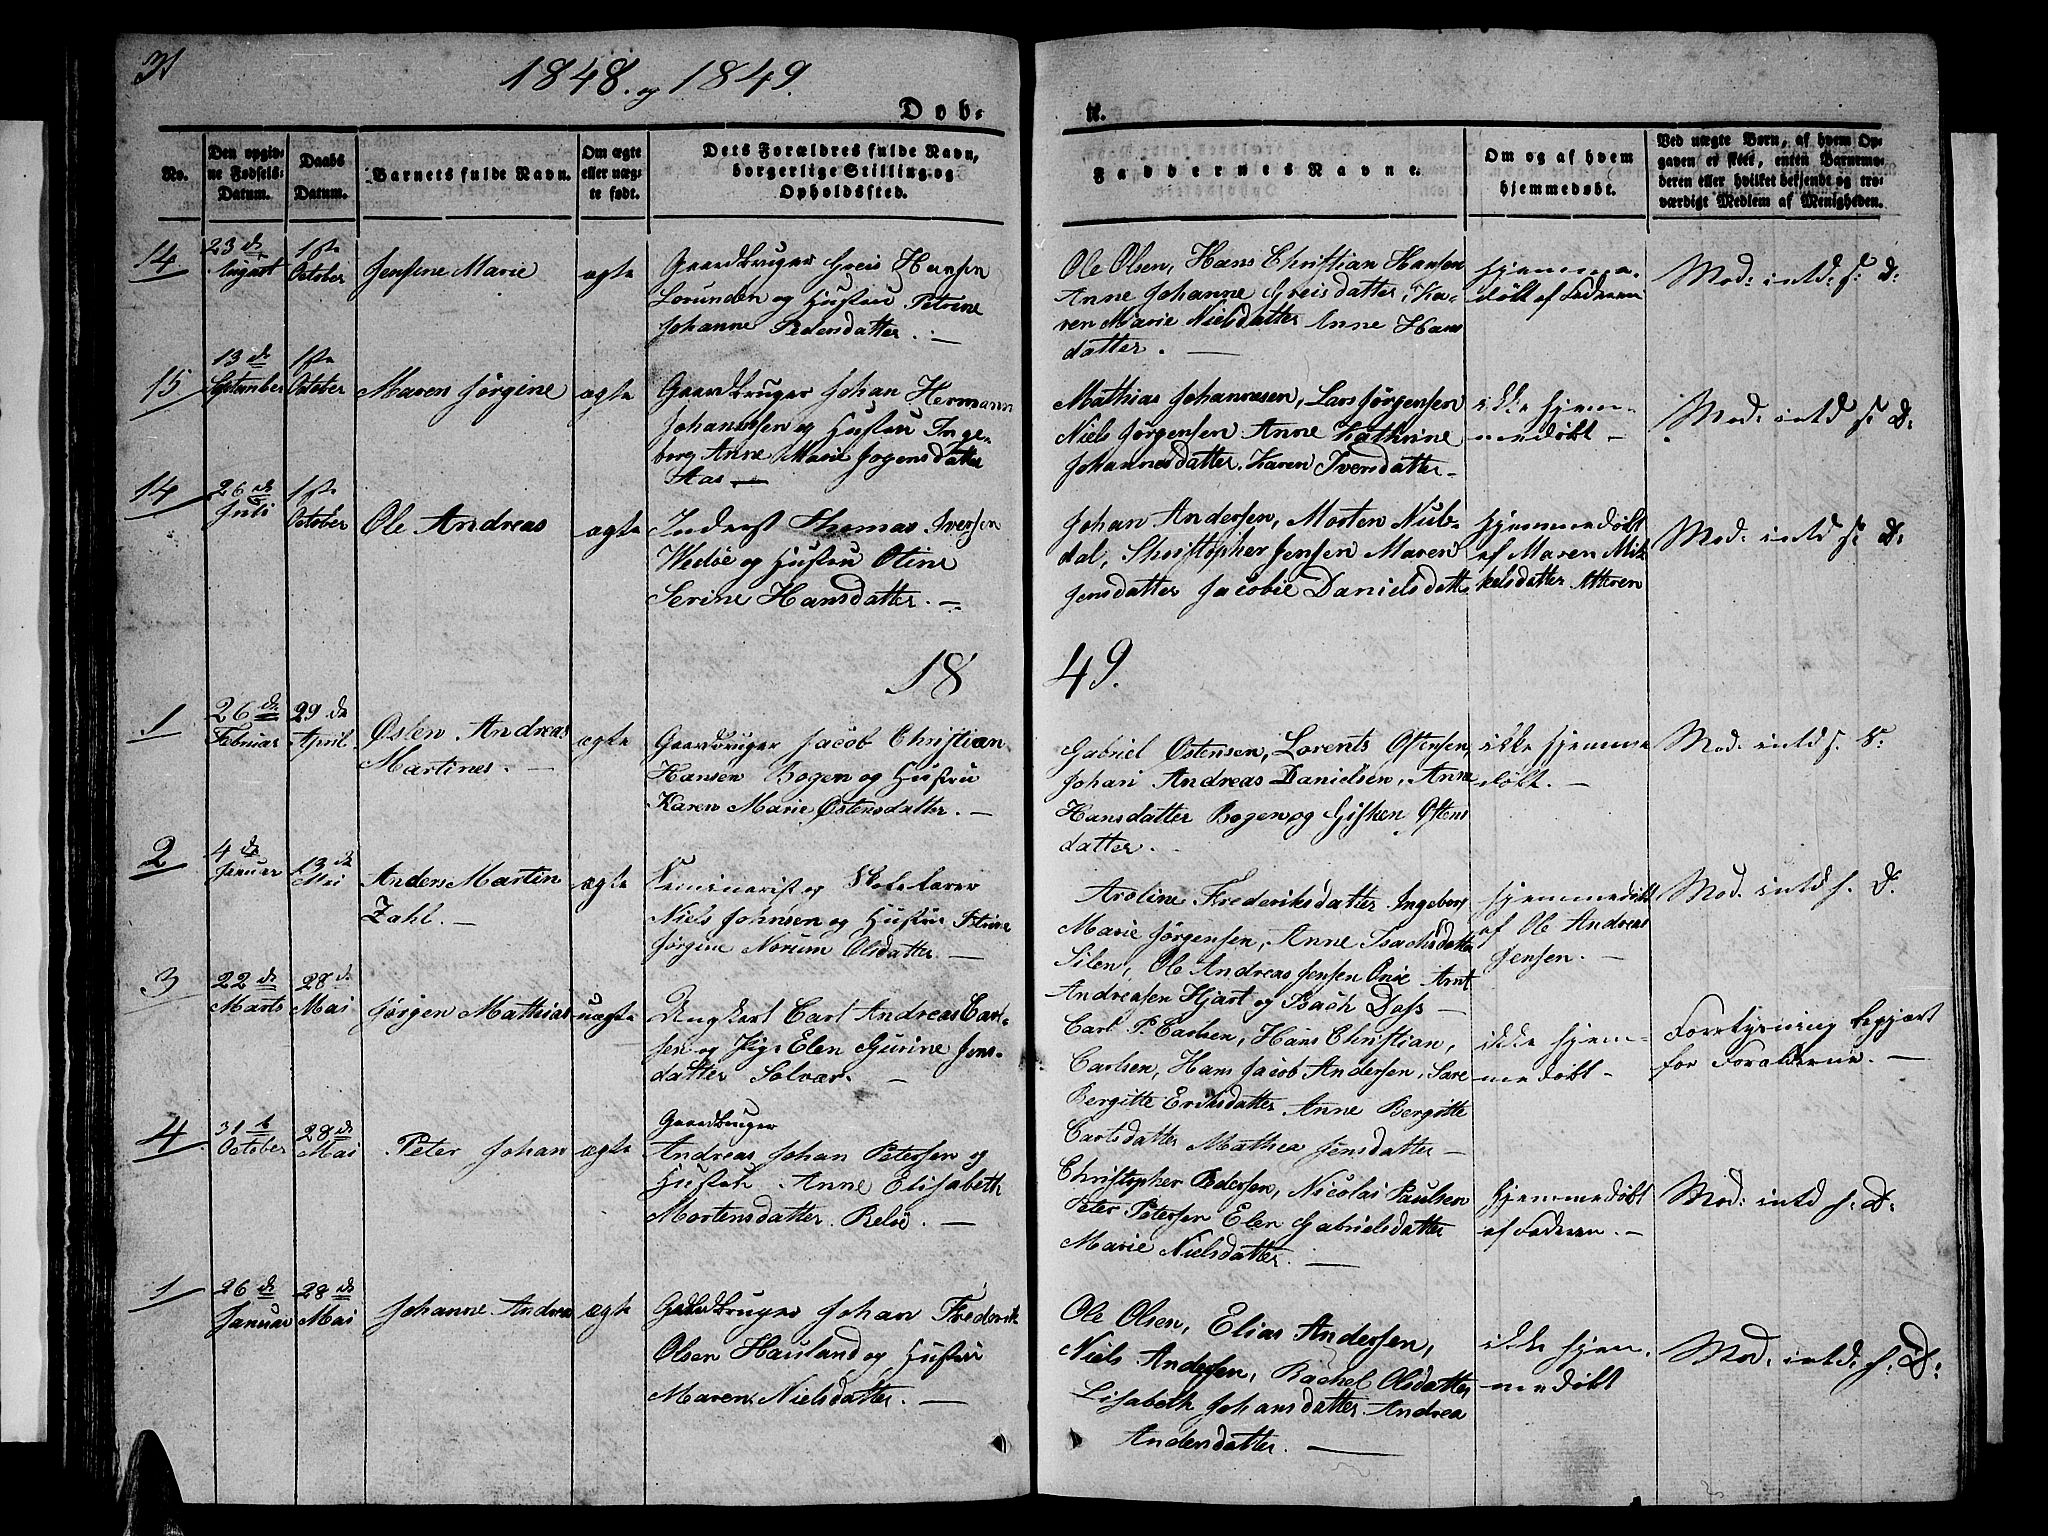 31
1848. og 1849.
Døb-
te.
No.
Den opgiv-
ne Fødsels-
Datum.
Daabs
Datum.
Barnets fulde Navn.
Om ægte
eller uæg-
te født.
Dets Forældres fulde Navn,
borgerlige Stilling og
Opholdssted.
Faddernes Navne.
Om og af hvem
hjemmedøbt.
Ved uægte Børn, af hvem Op-
gaven er skeet, enten Barnemo-
deren eller hvilket bekjendt og tro-
værdigt Medlem af Menigheden.
14
23 de
August
1ste
October
Jensine Marie
ægte
Gaardbruger Greis Hansen
Lorunden og Hustru Petrine
Johanne Pedersdatter. —
Ole Olsen, Hans Christian Hansen
Anne Johanne Greisdatter, Ka-
ren Marie Nielsdatter Anne Hans
datter. —
hjemme-
døbt af Faderen
Mod: intd: s: D:
15
13 de
September
1ste
October
Maren Jørgine
ægte
Gaardbruger Johan Hermann
Johannesen og Hustru Inge-
borg Anne Marie Jogensdatter
Aas —
Mathias Johannesen, Lars Jørgensen
Niels Jørgensen Anne Kathrine
Johannesdatter. Karen Iversdatter —
ikke hjem-
medøbt —
Mod: intd s: D:
14
26 de
Juli
1ste
October
Ole Andreas
ægte
Inderst Thomas Iversen
Wedøe og Hustru Oline
Serine Hansdatter. —
Johan Andersen, Morten Niels-
dal, Christopher Jensen Maren
Jensdatter Jacobie Danielsdatt
hjemmedøbt
af Maren Mik
kelsdatter Atteren
Mod: intd s: D:
18
49.
1
26 de
Februar
29 de
April
Østen Andreas
Martines. —
ægte
Gaardbruger Jacob Christian
Hansen Bogen og Hustru
Karen Marie Østensdatter. —
Gabriel Østensen, Lorents Østensen,
Johan Andreas Danielsen, Anne
Hansdatter Bogen og Gisken Østens
datter. —
ikke hjemme
døbt. —
Mod: intd s. D:
2
4 de
Januar
13 de
Mai
Anders Martin
Zahl. —
ægte
Seminarist og Skolelærer
Niels Johnsen og Hustru Petrine
Jørgine Norum Olsdatter. —
Aroline Frederiksdatter Ingebor
Marie Jørgensen, Anne Isachsdatter
Silen, Ole Andreas Jensen Onøe Arnt
Andreasen Hjart og Isach Dass —
hjemmedøbt
af Ole Andreas
Jensen. —
Mod. intd s. D.
3
22 de
Marts
28 de
Mai
Jørgen Mathias
uægte
Ungkarl Carl Andreas Carl-
sen og Pige Elen Gurine Jens-
datter Solvær. —
Carl P. Carlsen, Hans Christian,
Carlsen, Hans Jacob Andersen, Sare
Bergitte Eriksdatter Anne Bergitte
Carlsdatter Mathea Jensdatter —
ikke hjem-
medøbt —
Forelysning begjært
for Forældrene. —
4
31 te
October
28 de
Mai
Peter Johan
ægte
Gaardbruger
Andreas Johan Petersen og
Hustru Anne Elisabeth
Mortensdatter. Selsø. —
Christopher Pedersen, Nicolai Paulsen
Peter Petersen Elen Gabrielsdatter
Marie Nielsdatter. —
hjemmedøbt
af Faderen. —
Mod: intd s. D:
1
26 de
Januar
28 de
Mai
Johanne Andrea
ægte
Gaardbruger Johan Frederik
Olsen Hauland og Hustru
Maren Nielsdatter. —
Ole Olsen, Elias Andersen,
Niels Andersen, Rachel Olsdatter
Lisabeth Johansdatter Andrea
Andersdatter. —
ikke hjem-
medøbt
Mod: intd: s: D: